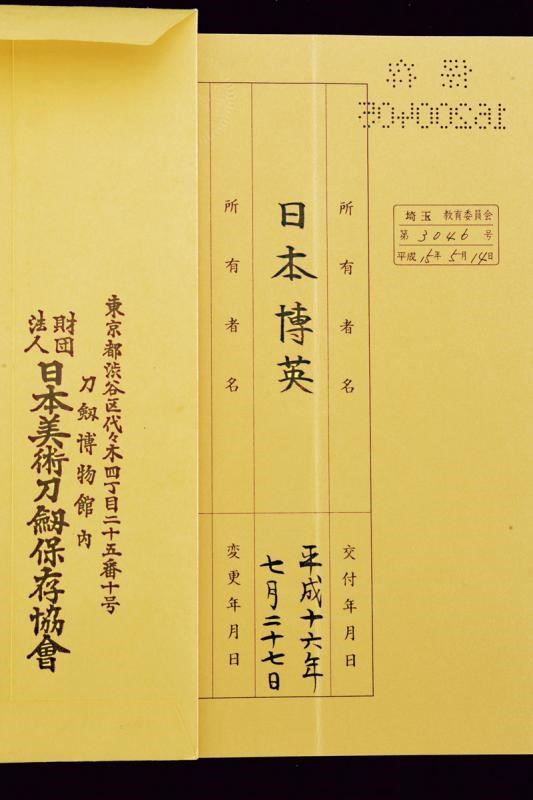 埼玉 教育委員会
第 3046 号
平成 15年 5月 14日
所有者名
交付年月日
日本博英
平成十六年
七月二十七日
所有者名
変更年月日
東京都渋谷区代々木四丁目二十五番十号
刀剱博物館内
財団法人 日本美術刀剱保存協會